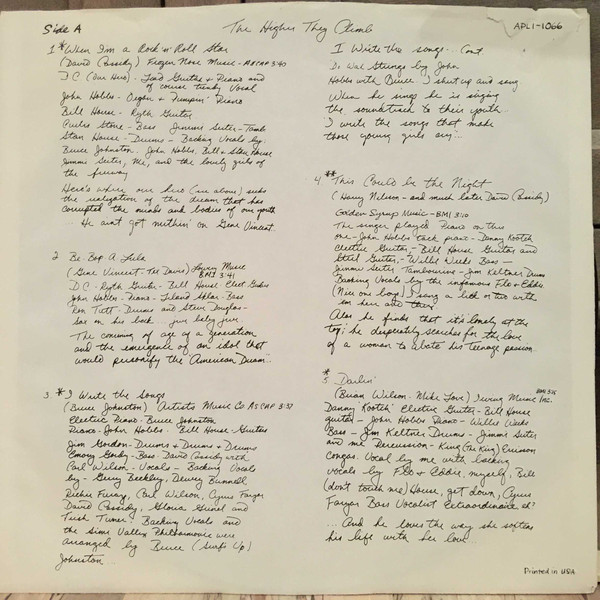 Side A
The Higher They Climb
APL1-1066
1 * When I'm a Rock 'n' Roll Star
(David Cassidy) Frozen Nose Music - ASCAP 3:40
D.C. (Our Hero) - Lead Guitar & Piano and
of course trendy Vocal
John Hobbs - Organ & Pumpin' Piano
Bill House - Rythm Guitar
Curtis Stone - Bass Jimmie Seiter - Tamb
Stan House - Drums - Backing Vocals by
Bruce Johnston, John Hobbs, Bill & Stan House
Jimmi Seiter, Me, and the lovely girls of
the freeway
Here's where our hero (see above) seeks
the realization of the dream that has
corrupted the minds and bodies of our youth
... He ain't got nuthin' on Gene Vincent.
2 Be Bop A Lula
(Gene Vincent - Tex Davis) Lowery Music
BMI 3:41
D.C. - Rythm Guitar - Bill House - Elect Guitar
John Hobbs - Piano - Leland Sklar - Bass
Ron Tutt - Drums and Steve Douglas -
Sax on his back
The coming of age of a generation
and the emergence of an idol that
would personify the American Dream...
3. * I Write the Songs
(Bruce Johnston) Artists Music Co ASCAP 3:37
Electric Piano - Bruce Johnston
Piano - John Hobbs - Bill House - Guitar
Jim Gordon - Drums & Drums & Drums
Emory Gordy - Bass - David Cassidy with
Carl Wilson - Vocals - Backing Vocals
by - Gerry Beckley, Dewey Bunnell
Richie Furay, Carl Wilson, Cyrus Faryar
David Cassidy, Gloria Grinel and
Tish Turner. Backing Vocals and
the Simi Valley Philharmonic were
arranged by Bruce (Surfs Up)
Johnston...
I Write the songs - Cont
Do Wae Strings by John
Hobbs with Bruce. I shut up and sang
When he sings he is singing
the soundtrack to their youth.
I write the songs that make
those young girls cry...
4 ** This Could be the Night
(Harry Nilsson - and much later David Cassidy)
Golden Syrup Music - BMI 3:10
The singer played Piano on this
one - John Hobbs tack piano - Danny Kootch
electric Guitar - Bill House Guitar and
Steel Guitar - Willie Weeks Bass -
Jimmie Seiter Tambourine - Jim Keltner Drums
Backing Vocals by the infamous Flo & Eddie,
(Nice one boys) I sang a lick or two with
'em here and there
Alas he finds that it's lonely at the
top: he desperately searches for the love
of a woman to abate his teenage passion.
* 5 Darlin'
(Brian Wilson - Mike Love) Irving Music Inc.
BMI 3:15
Danny Kootch Electric Guitar - Bill House
guitar - John Hobbs Piano - Willie Weeks
Bass - Jim Keltner Drums - Jimmie Seiter
and me Percussion - King (The King) Errisson
Congas. Vocal by me with backing
vocals by Flo & Eddie, myself, Bill
(don't touch me) House, get down, Cyrus
Faryar Bass Vocalist Extraordinaire eh?
... And he loves the way she softens
his life with her love
Printed in USA